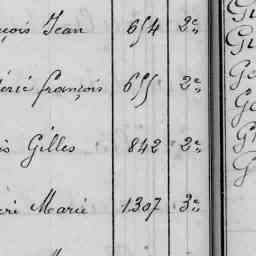 çois Jean 654 2e
érie françois 655 2e
is Gilles 842 2e
eri Marie 1307 3e